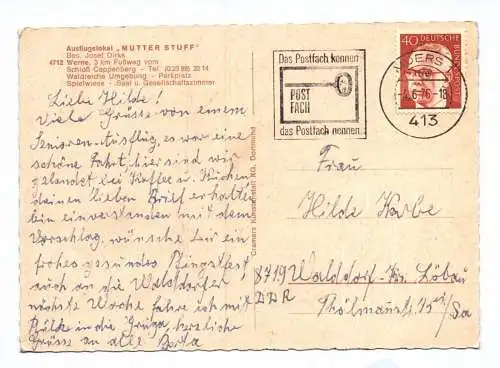 Ausflugslokal „MUTTER STUFF"
Bes. Josef Dirks
4712 Werne, 3 km Fußweg vom
Schloß Cappenberg - Tel (0 23 89) 22 14
Waldreiche Umgebung - Parkplatz
Spielwiese - Saal u. Gesellschaftszimmer
Liebe Hilde!
Viele Grüsse von einem
Senioren-Ausflug, es war eine
schöne Fahrt, hier sind wir
gelandet bei Kaffee u. Kuchen
deinen lieben Brief erhalten
bin einverstanden mit dem
Vorschlag, wünsche Euch ein
frohes gesundes Pfingstfest
auch an die Walddorfer!
nächste Woche fahre ich mit
in die Gruga, herzliche
Grüsse an alle Berta
Cramers Kunstanstalt KG, Dortmund
Das Postfach kennen
POST
FACH
das Postfach nennen
MOERS 1
-4.6.76-18
413
40 DEUTSCHE
BUNDESPOST
Frau
Hilde
8719 Walddorf Kr. Löbau
DDR
Thälmannstr. 15
/Sa